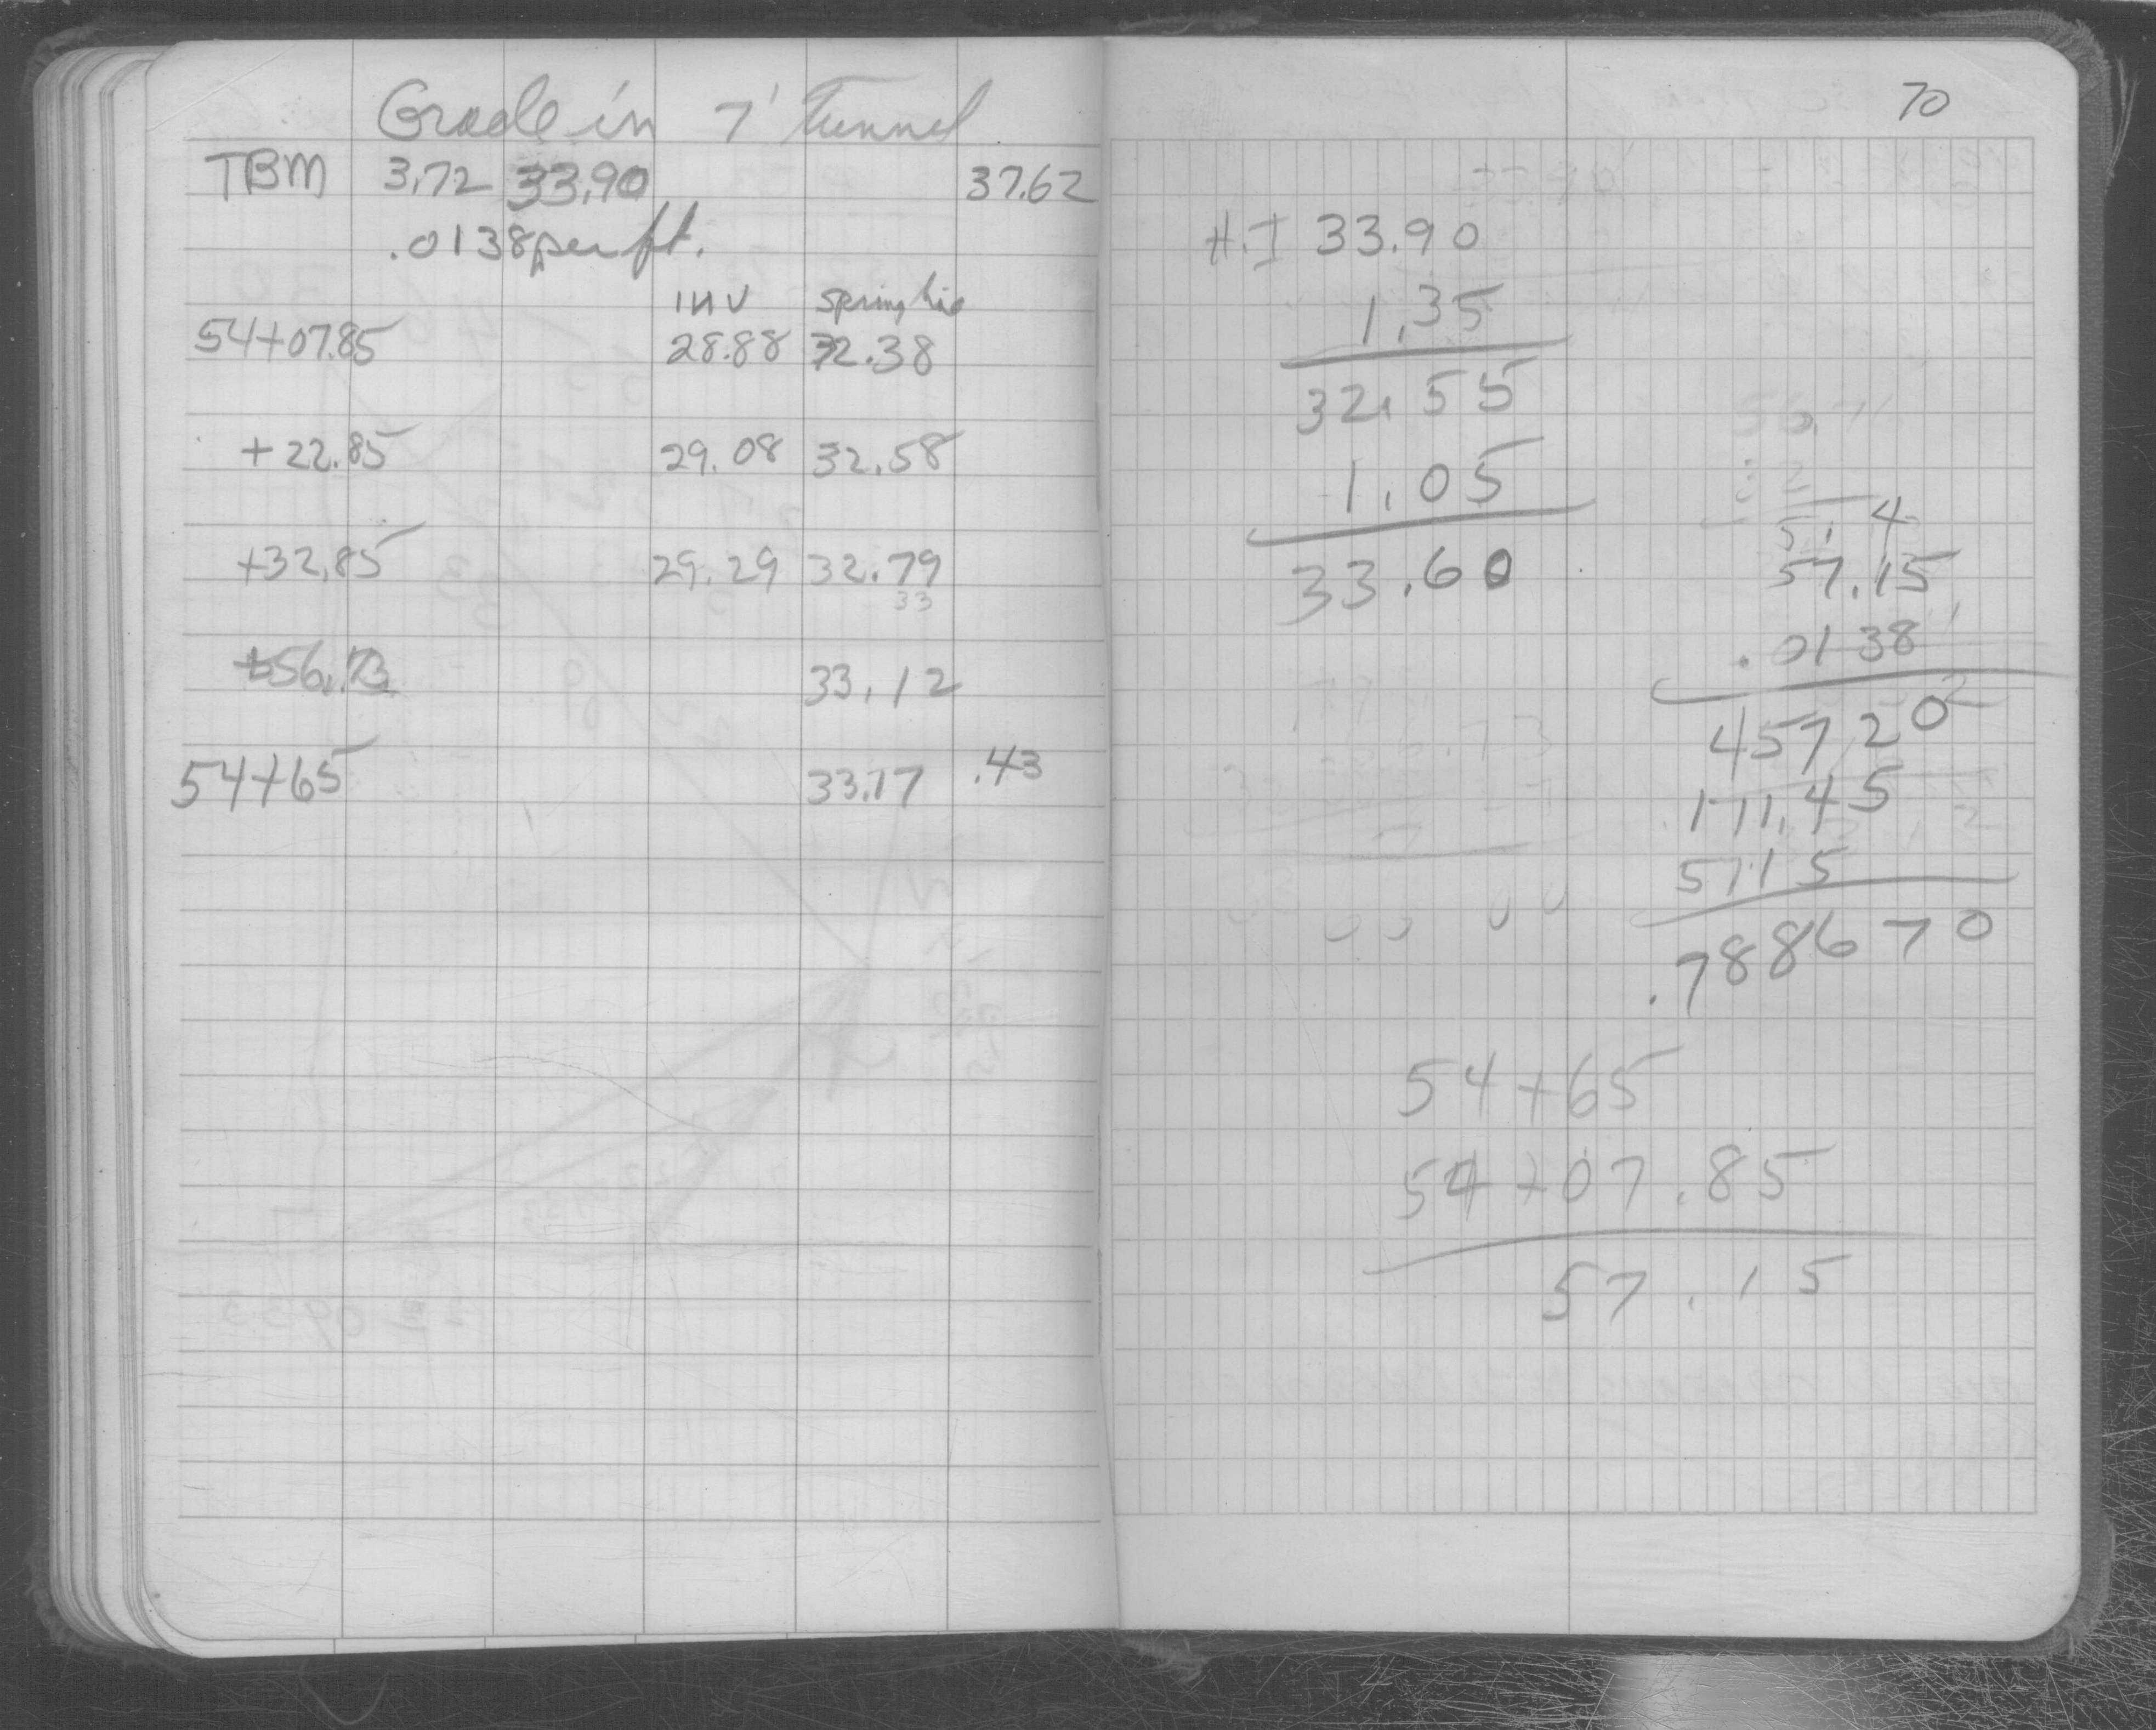 Grade in 7' Tunnel
TBM 3.72 33.90 37.62
.0138 per ft.
INV Spring line
54+07.85 28.88 32.38
+22.85 29.08 32.58
+32.85 29.29 32.79
33
+56.73 33.12
54+65 33.17 .43
70
H.I 33.90
1.35
32.55
1.05
33.60
57.15
.0138
45720
17145
5715
.788670
54+65
54+07.85
57.15